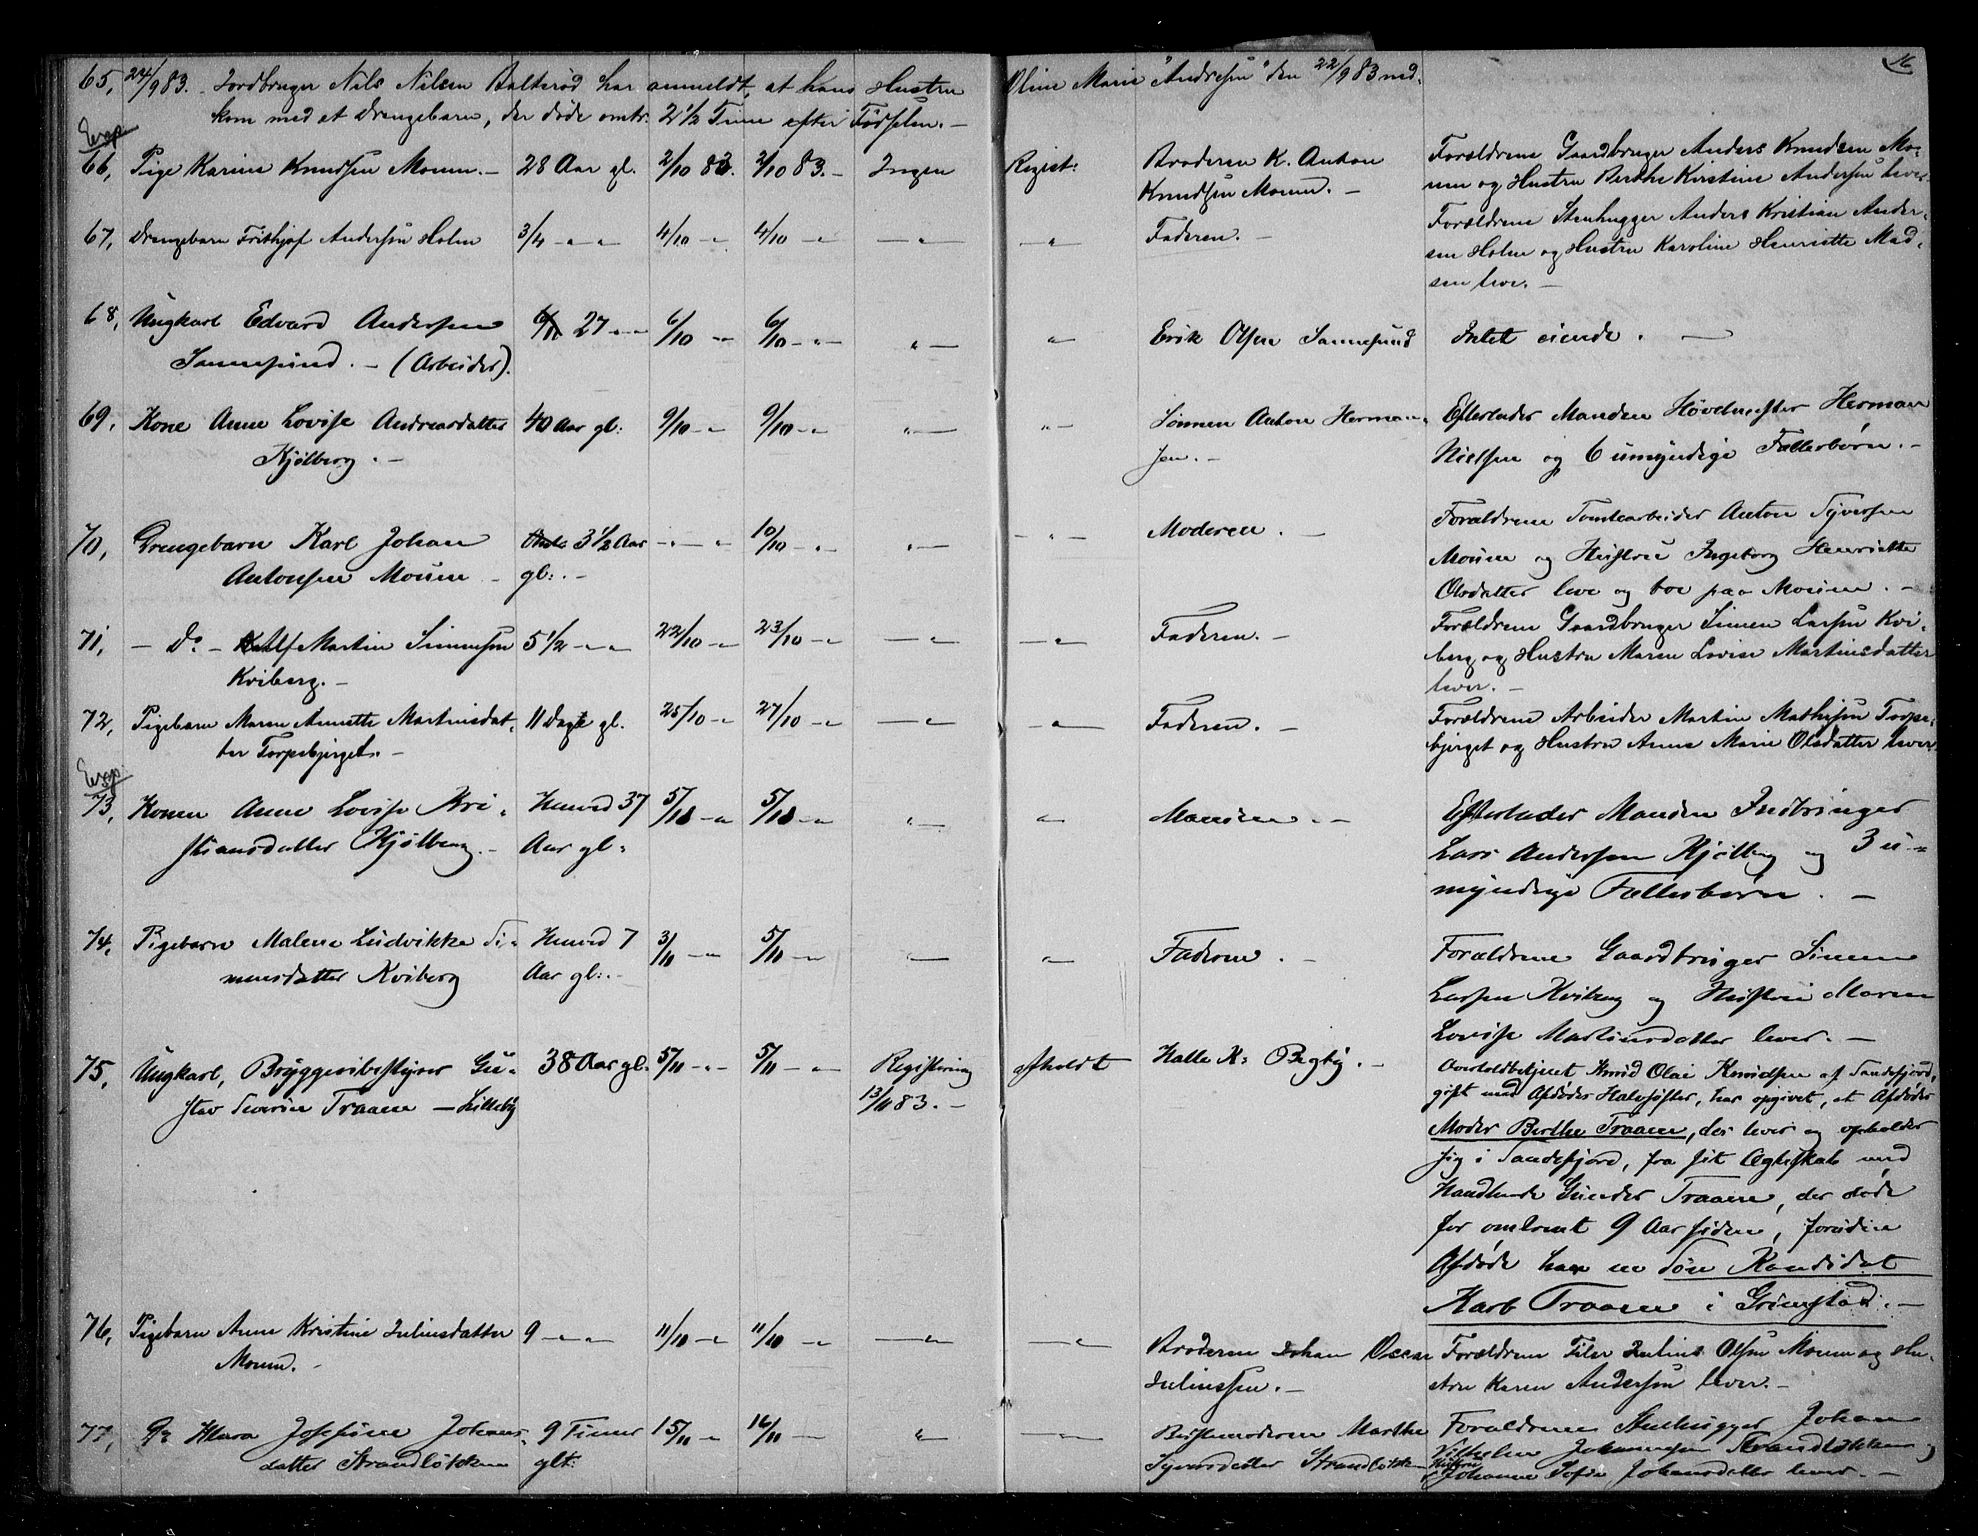 16
65, 24/9 83. Jordbruger Nils Nilsen Balterød har anmeldt, at hans Hustru Oline Marie "Andresen" den 22/9 83 ned-
kom med et Drengebarn, der døde omtr. 2 1/2 Time efter Fødselen. —
Exp.
66, Pige Karine Knudsen Moum. — 28 Aar gl. 2/10 83. 2/10 83. — Ingen Regist: Broderen K. Anton Forældrene Gaardbruger Anders Knudsen Mo-
Knudsen Moum. — um og Hustru Berthe Kirstine Andersen lever
67, Drengebarn Frithjof Andersen Holm 3/4 — " — " 4/10 — " 4/10 — " — " — " Faderen. — Forældrene Stenhugger Anders Kristian Ander-
sen Holm og Hustru Karoline Henriette Mad-
sen lever. —
68, Ungkarl Edvard Andersen 27 — " — 6/10 — " 6/10 — " — " — " Erik Olsen Sannesund Intet eiende. —
Sannesund. — (Arbeider).
69, Kone Anne Lovise Andreasdatter 40 Aar gl: 9/10 — " 9/10 — " — " — " — Sønnen Anton Herman- Efterlader Manden Høvelmester Herman
Kjølberg. — sen. — Nielsen og 6 umyndige Fællesbørn. —
70, Drengebarn Karl Johan 3 1/2 Aar — " — " 10/10 — " — " — — " — Moderen. — Forældrene Tomtearbeider Anton Syversen
Antonsen Moum — gl: — Moum og Hustru Ingeborg Henriette
Olsdatter leve og boe paa Moum. —
71, — Do — Alf Martin Simensen 5 1/2 — " — " 22/10 — " 23/10 — " — " — " Faderen. — Forældrene Gaardbruger Simen Larsen Kvi-
Kviberg. — berg og Hustru Maren Lovise Martinsdatter
lever. —
72, Pigebarn Maren Annette Martinsdat- 11 Dage gl. 25/10 — " 27/10 — " — " — " Faderen. — Forældrene Arbeider Martin Mathisen Torpe-
ter Torpebjerget. — bjerget og Hustru Anne Marie Olsdatter lever
Exp.
73, Konen Anne Lovise Kri- Henved 37 5/11 — " 5/11 — " " — " — Manden. — Efterlader Manden Indbringer
stiansdatter Kjølberg. — Aar gl: Lars Andersen Kjølberg og 3 u-
myndige Fællesbørn. —
74, Pigebarn Malene Ludvikke Si- Henved 7 3/11 — " 5/11 — " " — " — Faderen. — Forældrene Gaardbruger Simen
mensdatter Kviberg Aar gl: — Larsen Kviberg og Hustru Maren
Lovise Martinsdatter lever. —
75, Ungkarl, Bryggeribestyrer Gu- 38 Aar gl. 5/11 — " — 5/11 — " Registrering afholdt Halle K: Begby. — Overtoldbetjent Knud Olai Knudsen af Sandefjord,
stav Severin Traaen — Lilleby 13/11 83. — gift med Afdødes Halvsøster, har opgivet, at Afdødes
Moder Berthe Traaen, der lever og opholder
sig i Sandefjord, fra sit Ægteskab med
Handlende Gunder Traaen, der døde
for omtrent 9 Aar siden, foruden
Afdøde har en Søn Kandidat
Karl Traaen i Grimstad. —
76, Pigebarn Anne Kristine Juliusdatter 9 — " — " 11/11 — " 11/11 — " — " — " Broderen Johan Oscar Forældrene Filer Julius Olsen Moum og Hu-
Moum. — Juliussen. — stru Karen Andersen lever. —
77, Do Klara Josefine Johans- 9 Timer 15/11 — " 16/11 — " " — Bestemoderen Marthe Forældrene Stenhugger Johan
datter Strandløkken glt: Syversdatter Strandløkken Vilhelm Johannesen Strandløkken og
Hustru Johanne Sofie Johansdatter lever. —